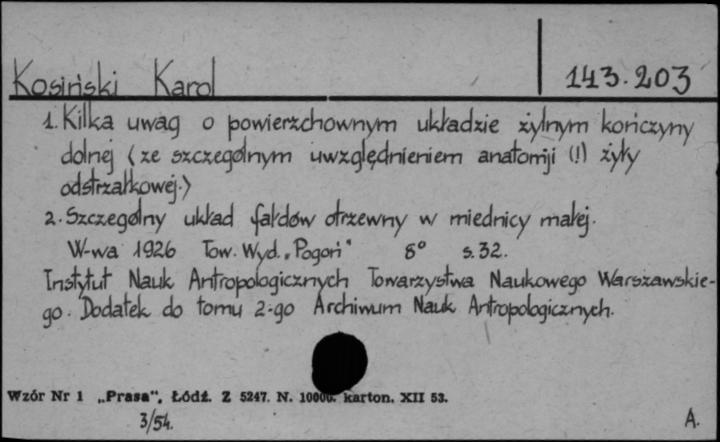 Kosiński Karol 143.203
1. Kilka uwag o powierzchownym układzie żylnym kończyny
dolnej (ze szczególnym uwzględnieniem anatomji (!) żyły
odstrzałkowej.)
2. Szczególny układ fałdów otrzewny w miednicy małej.
W-wa 1926 Tow. Wyd. „Pogoń" 8° s. 32.
Instytut Nauk Antropologicznych Towarzystwa Naukowego Warszawskie-
go. Dodatek do tomu 2-go Archiwum Nauk Antropologicznych.
Wzór Nr 1 „Prasa", Łódź. Z 5247. N. 10000. karton. XII 53.
3/54. A.